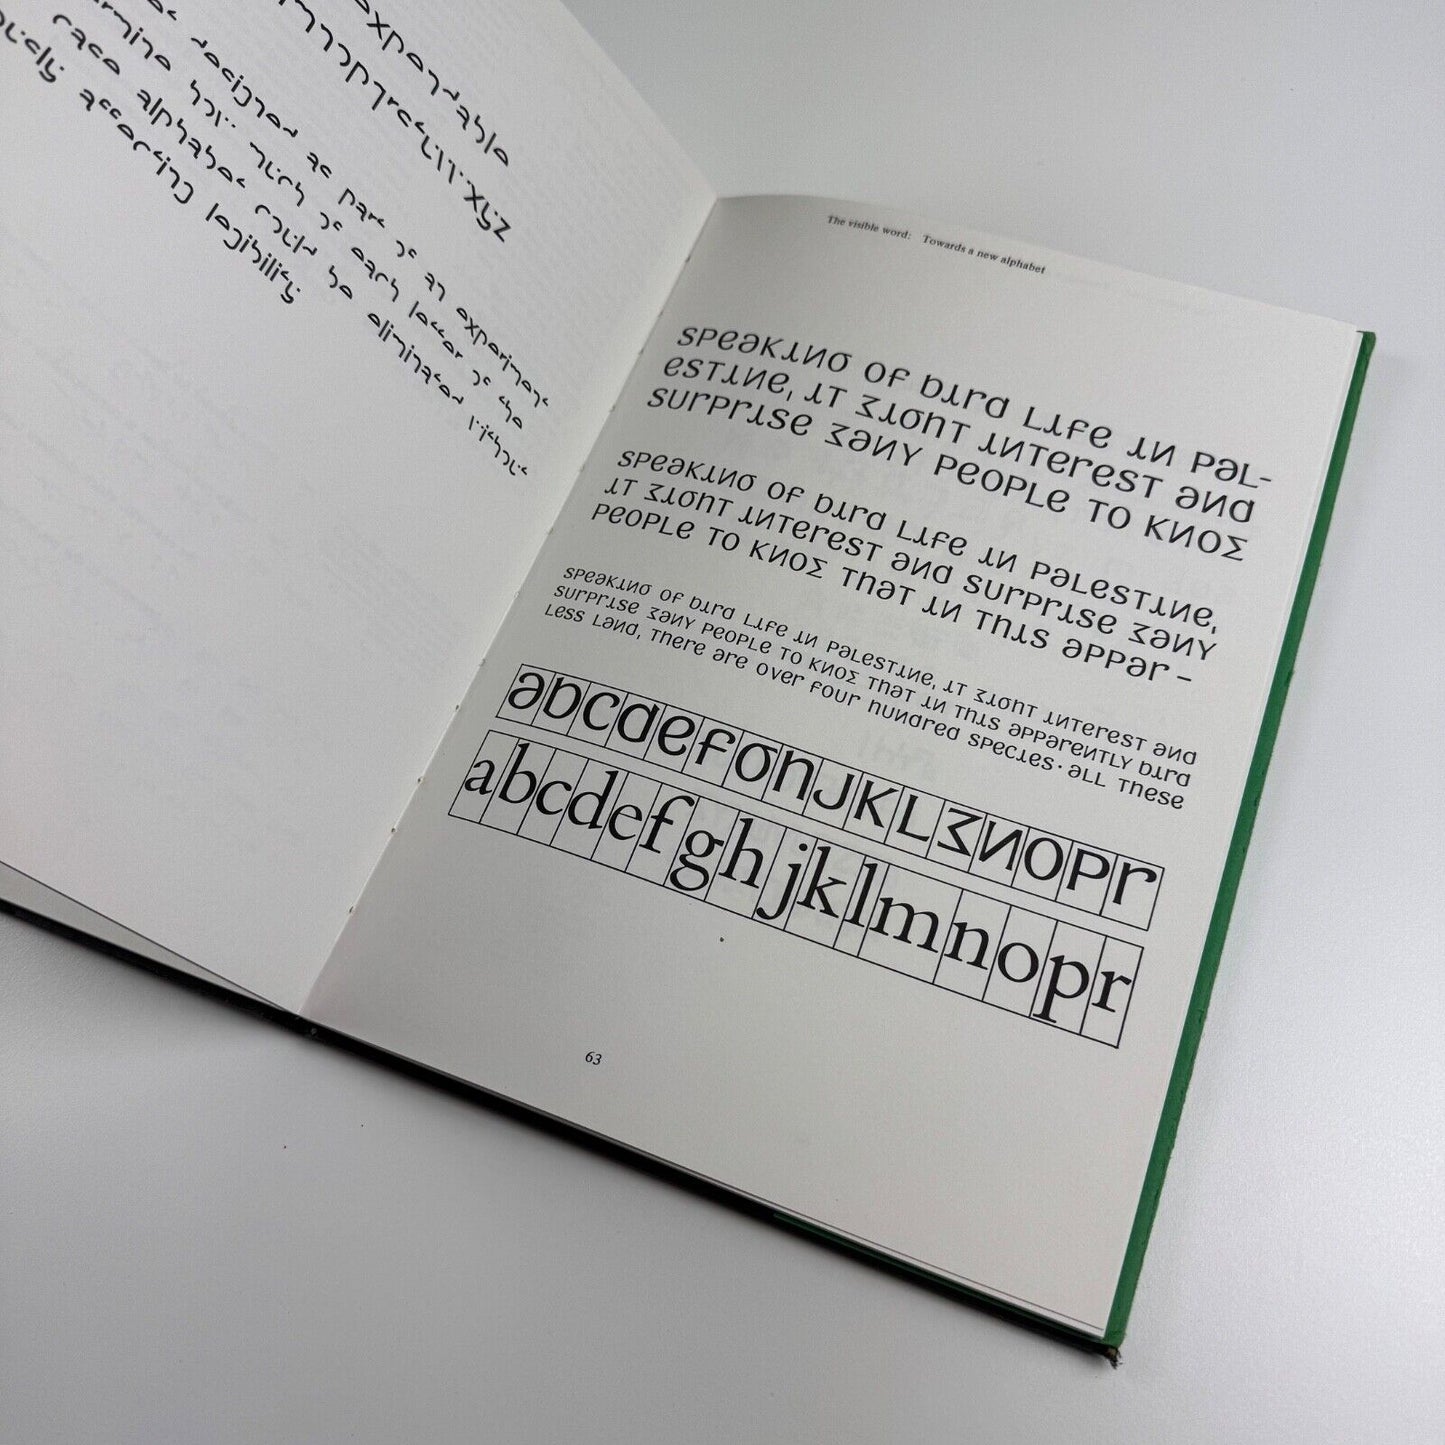 expendable
mnopqrstuvwxyz
designed as part of an experiment
how much of each letter of the
case alphabet could be eliminated without
affecting legibility
The visible word: Towards a new alphabet
speaking of bird life in pal-
estine, it might interest and
surprise many people to know
speaking of bird life in palestine,
it might interest and surprise many
people to know that in this appar-
speaking of bird life in palestine, it might interest and
surprise many people to know that in this apparently bird
less land, there are over four hundred species. all these
abcdefghjklmnopr
abcdefghjklmnopr
63